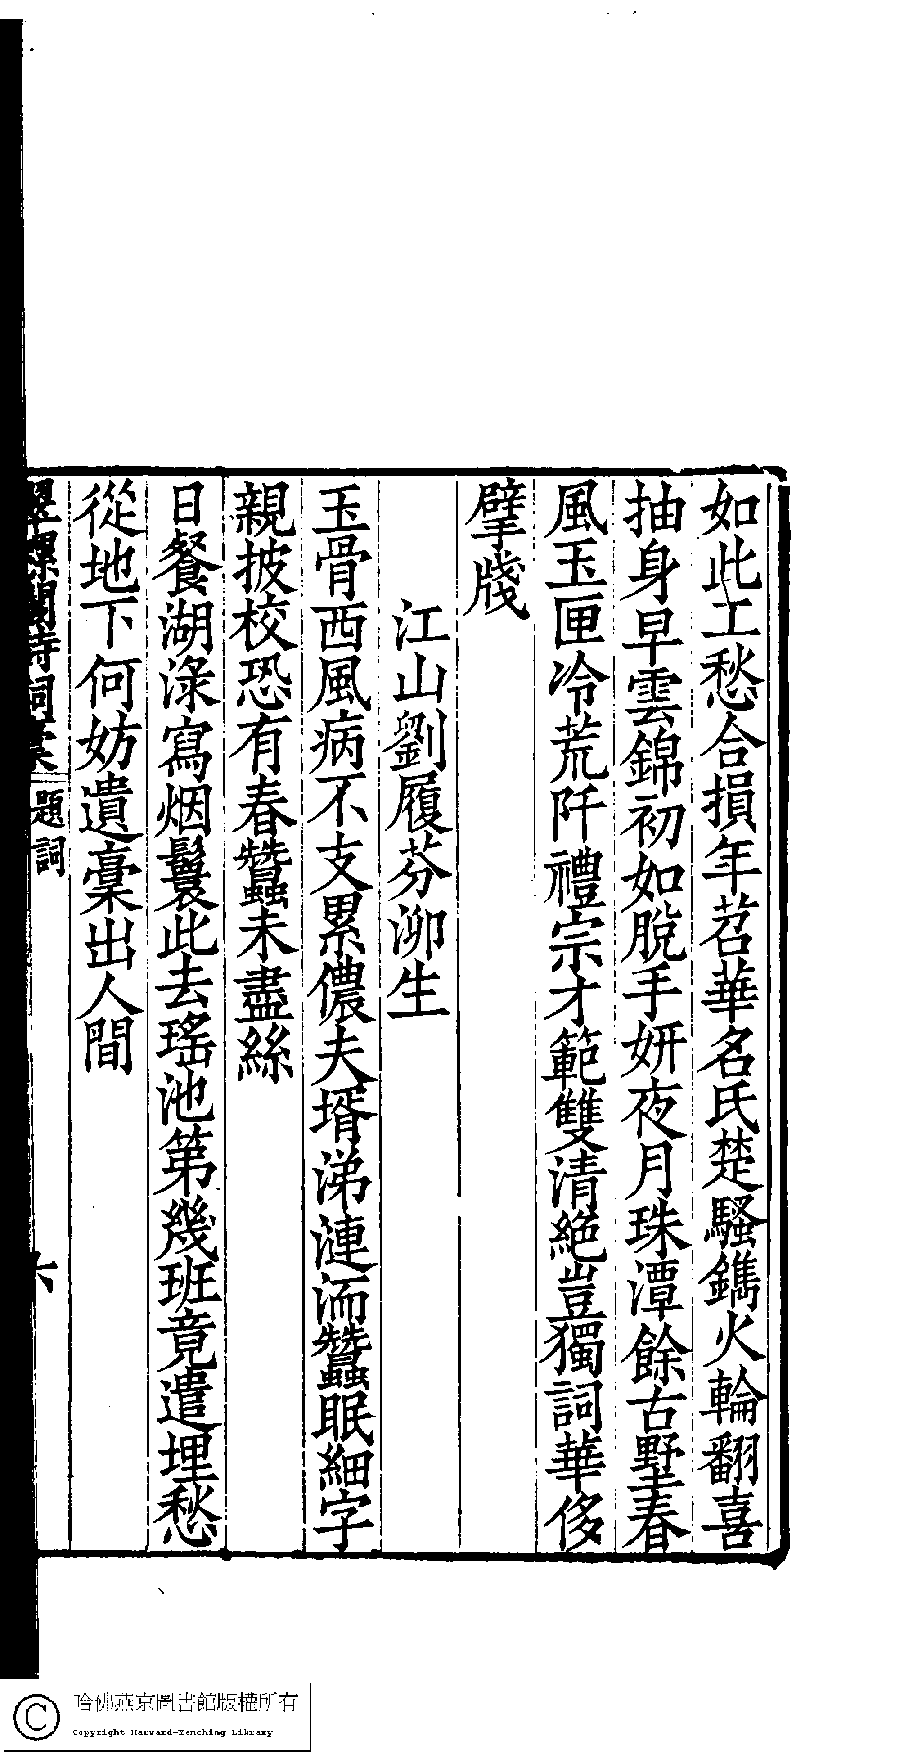 如此工愁合損年苕華名氏楚騷鐫火輪翻喜
抽身早雲錦初如脫手妍夜月珠潭餘古墅春
風玉匣冷荒阡禮宗才範雙清絕豈獨詞華侈
擘牋
江山劉履芬泖生
玉骨西風病不支累儂夫壻涕漣洏蠶眠細字
親披校恐有春蠶未盡絲
日餐湖淥寫烟鬟此去瑤池第幾班竟遣埋愁
從地下何妨遺稾出人間
翠螺閣詩詞稾 題詞 六
哈佛燕京圖書館版權所有
Copyright Harvard-Yenching Library